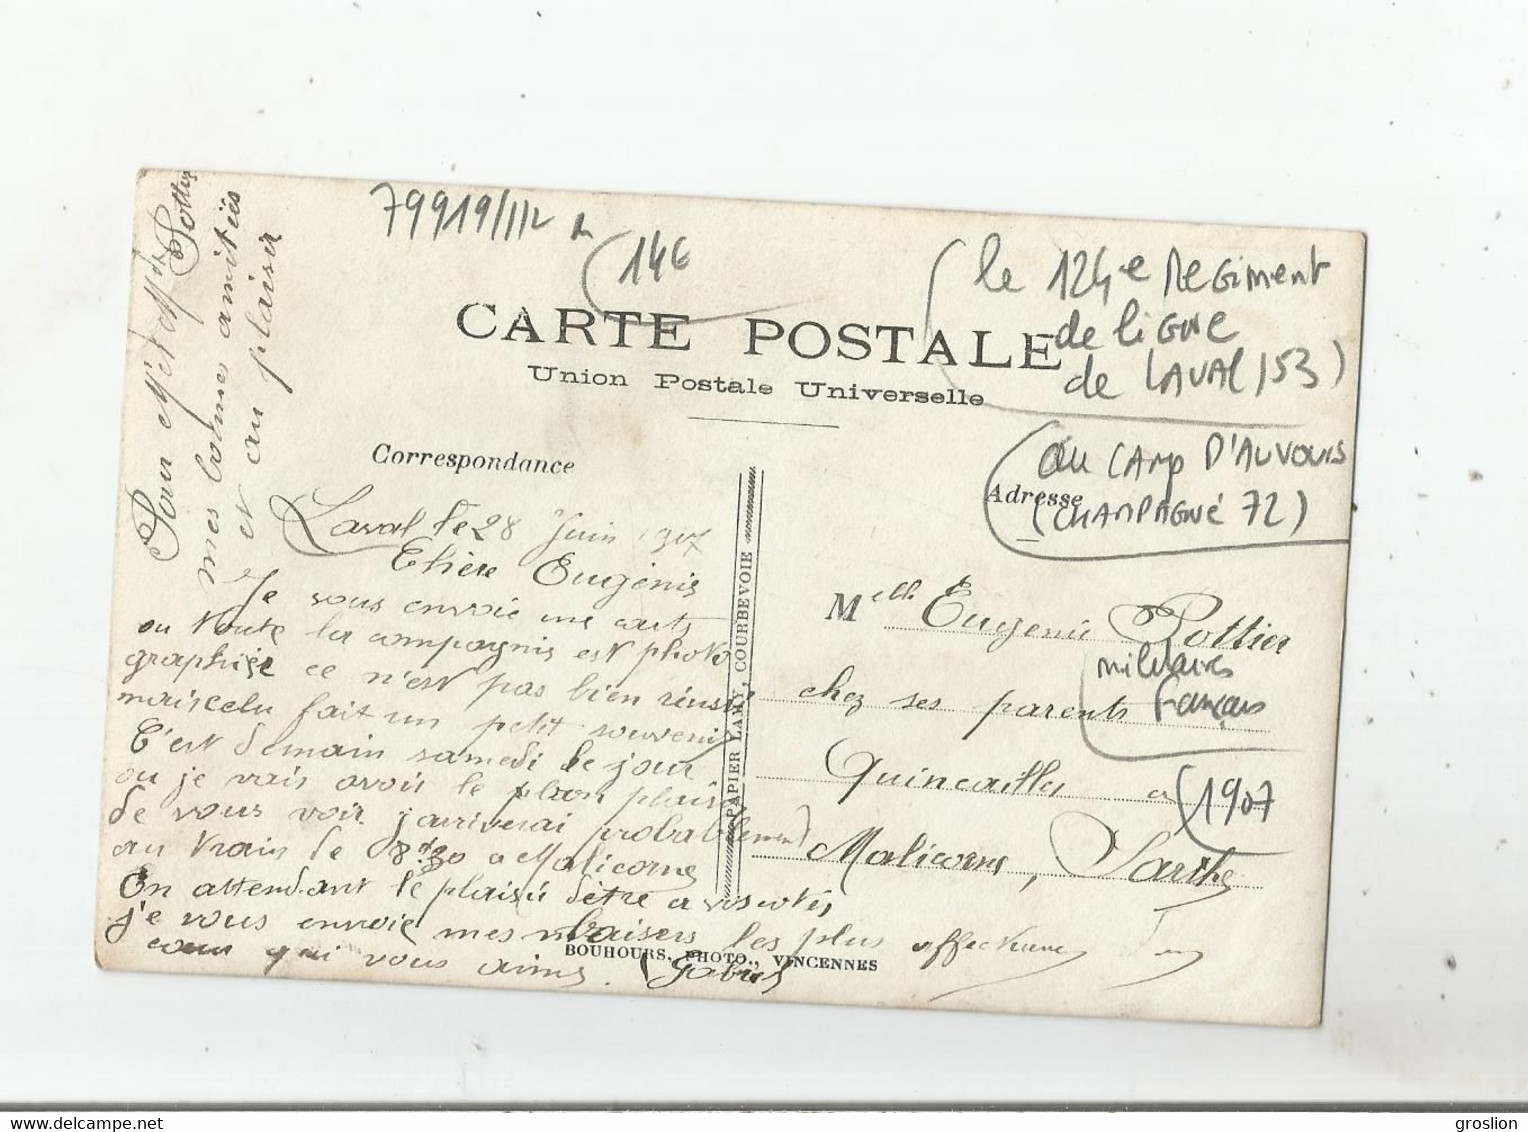 79919/II/2
14€
le 124e Regiment
de ligne
de LAVAL (53)
au CAMP D'AUVOURS
(CHAMPAGNÉ 72)
militaires
Français
1907
CARTE POSTALE
Union Postale Universelle
Correspondance
Adresse
Pour Mr et Mde Pottier
mes bonnes amitiés
et au plaisir
Laval le 28 Juin 1907
Chère Eugénie
Je vous envoie une carte
ou toute la compagnie est photo
graphiée ce n'est pas bien réussi
mais celu fait un petit souvenir
C'est demain samedi le jour
ou je vais avoir le plaisir
de vous voir j'arriverai probablement
au train de 8h30 a Malicorne
En attendant le plaisir d'être a vos cotés
je vous envoie mes baisers les plus affectueux
cœur qui vous aime. Gabriel
Melle Eugenie Pottier
chez ses parents
Quincailler a
Malicorne, Sarthe
PAPIER LAMY, COURBEVOIE
BOUHOURS, PHOTO., VINCENNES
groslion